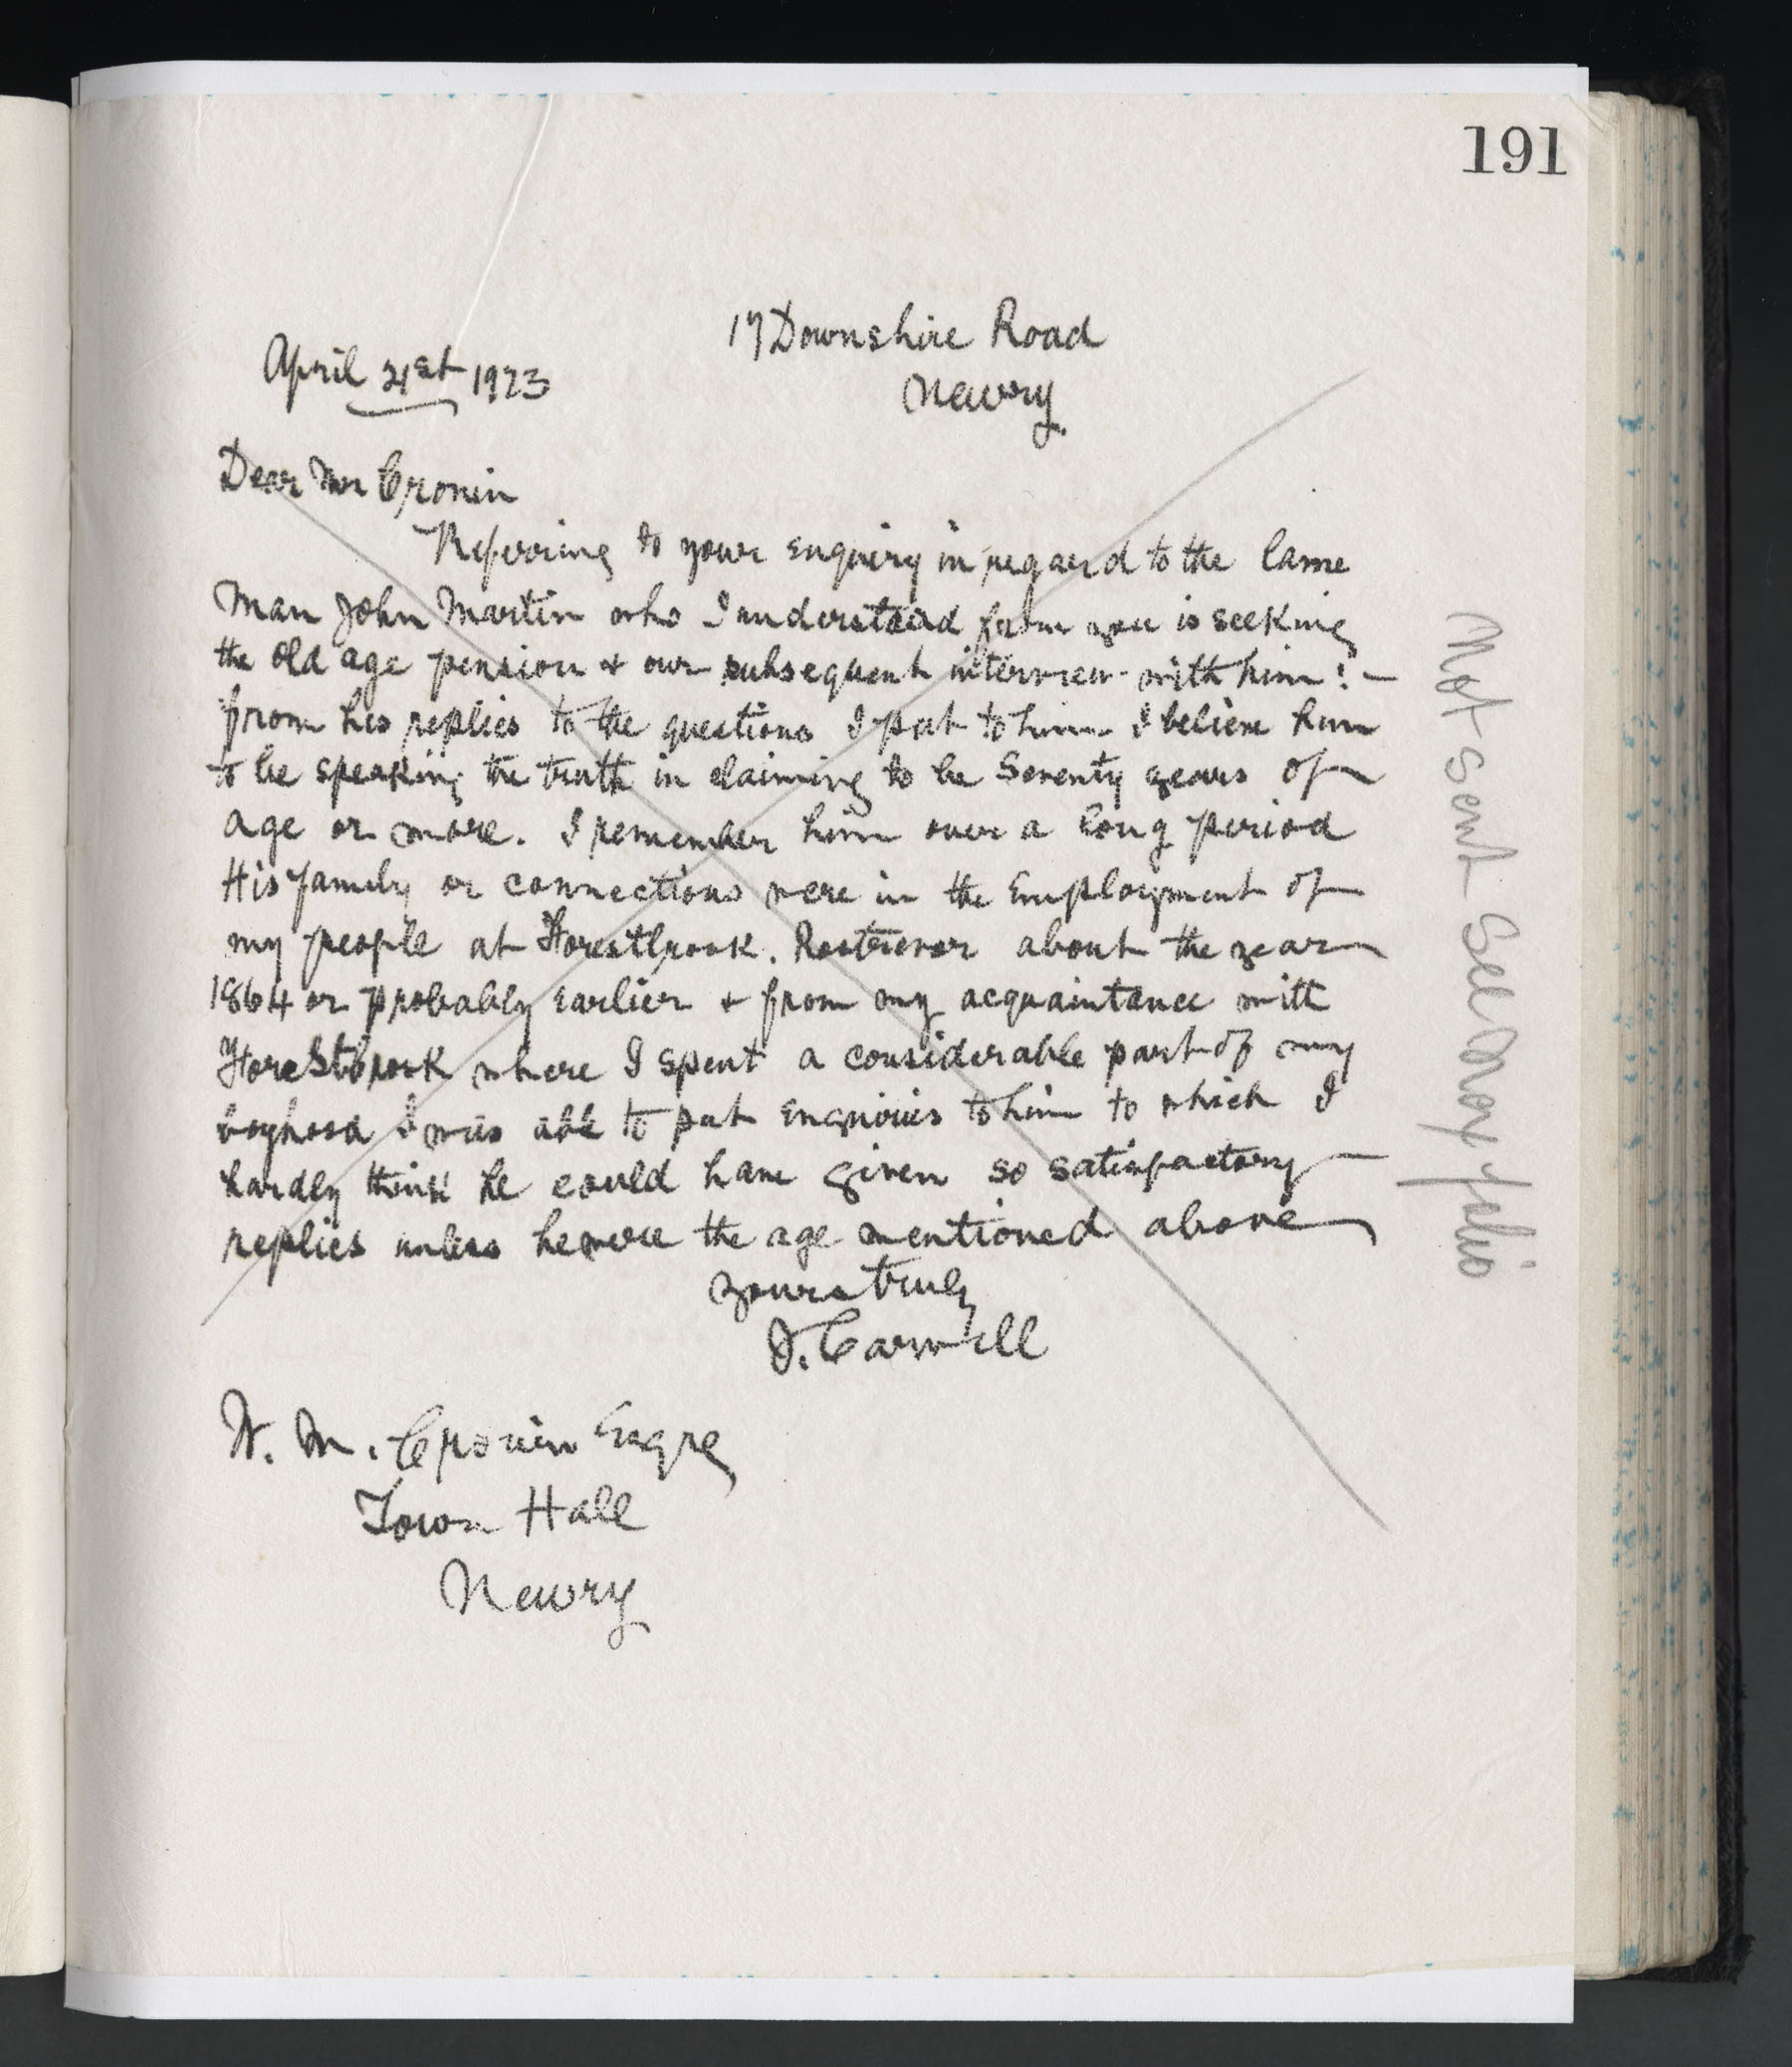 191
17 Downshire Road
April 21st 1923
Newry.
Dear Mr Cronin
Referring to your enquiry in regard to the lame
man John Martin who I understand from you is seeking
the old age pension & our subsequent interview with him: -
from his replies to the questions I put to him I believe him
to be speaking the truth in claiming to be Seventy years of
age or more. I remember him over a long period
His family or connections were in the Employment of
my people at Forestbrook. Rostrevor about the year
1864 or probably Earlier & from my acquaintance with
Forestbrook where I spent a considerable part of my
boyhood I was able to put Enquiries to him to which I
hardly think he could have given so satisfactory
replies unless he were the age mentioned above
Yours truly
J. Carvill
W. M. Cronin Esqre
Town Hall
Newry
Not sent See next folio